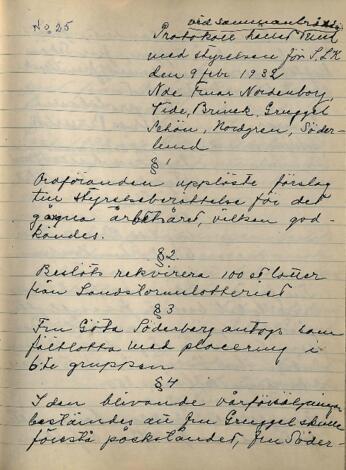 No 25
vid sammanträde
Protokoll hållet
med styrelsen för S.L.K
den 9 febr 1932
Nde Fruar Nordenborg,
Vide, Brinck, Gruggel
Schön, Nordgren, Söder-
lund
§ 1
Ordföranden uppläste förslag
till styrelseberättelse för det
gångna årbetsåret, vilken god-
kändes.
§ 2.
Beslöts rekvirera 100 st lotter
från Landstormslotteriet
§ 3
Fru Göta Söderberg antogs som
fältlotta med placering i
6:te gruppen
§ 4
I den blivande vårförsäljningen
bestämdes att fru Gruggel skulle
förestå påskståndet, fru Söder-